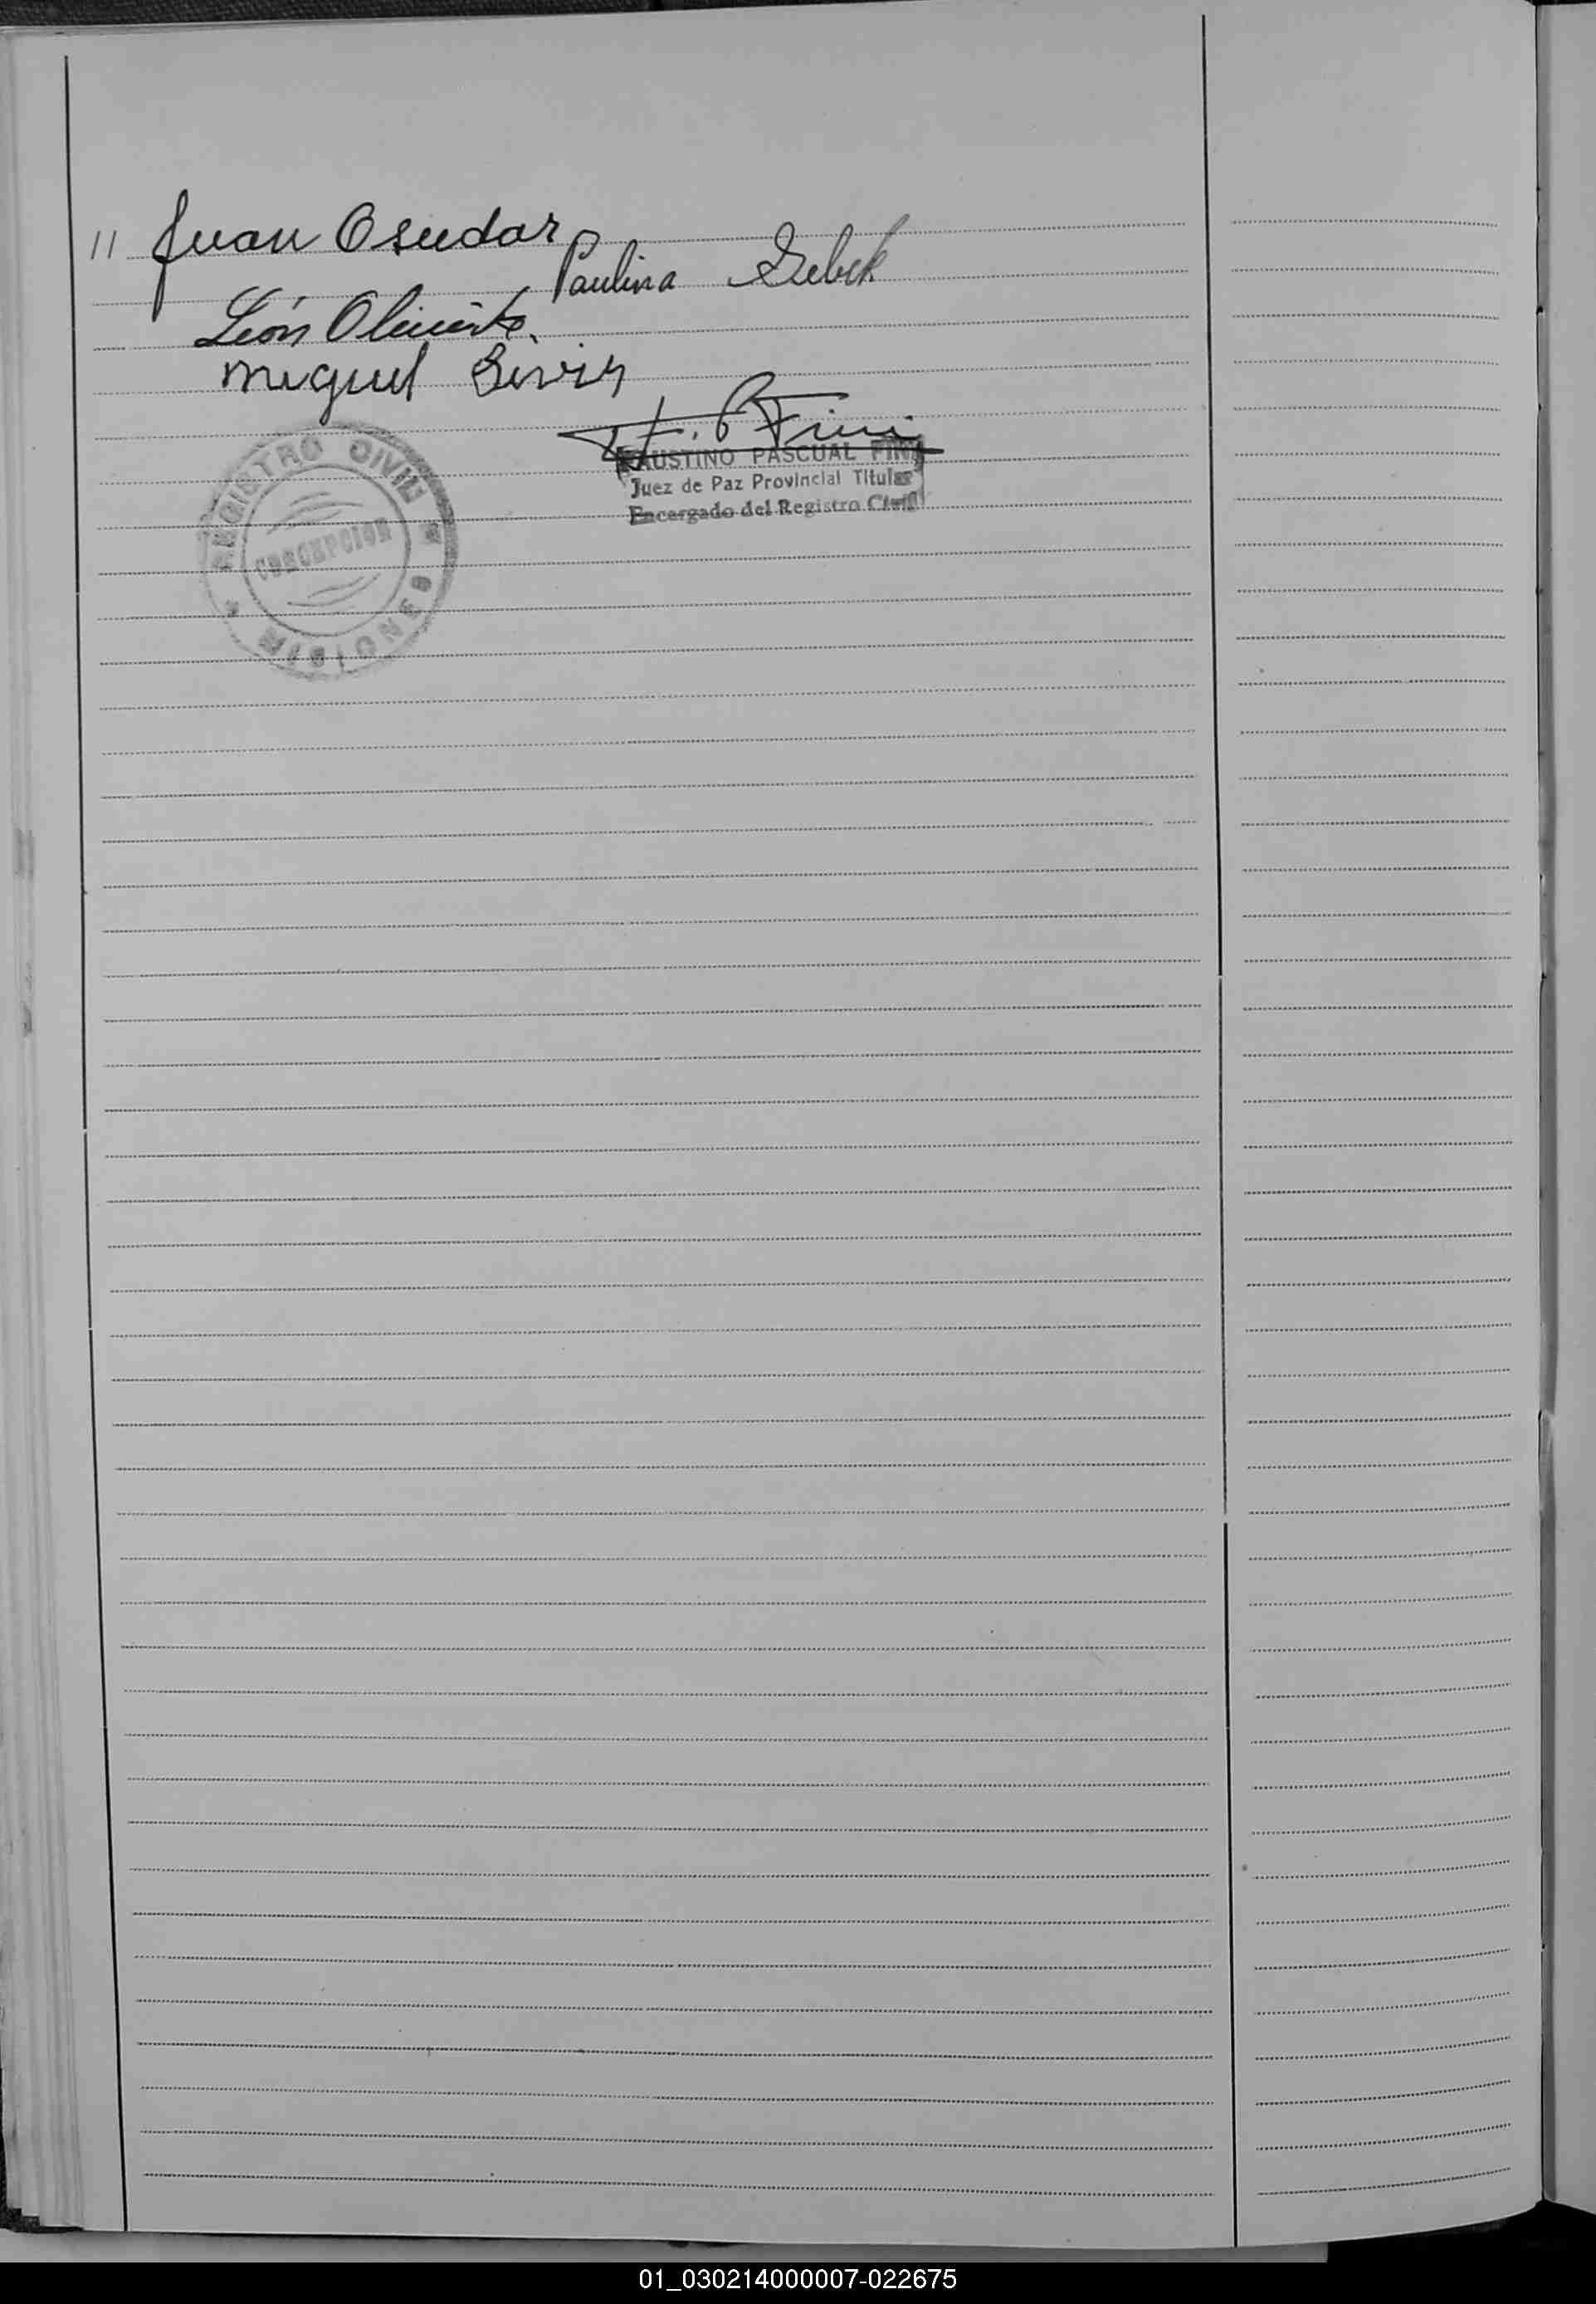 11 Juan Osudar
Paulina Sebek
León
Miguel
F. P. Fini
FAUSTINO PASCUAL FINI
Juez de Paz Provincial Titular
Encargado del Registro Civil
REGISTRO CIVIL
CONCEPCION
MISIONES
01_030214000007-022675